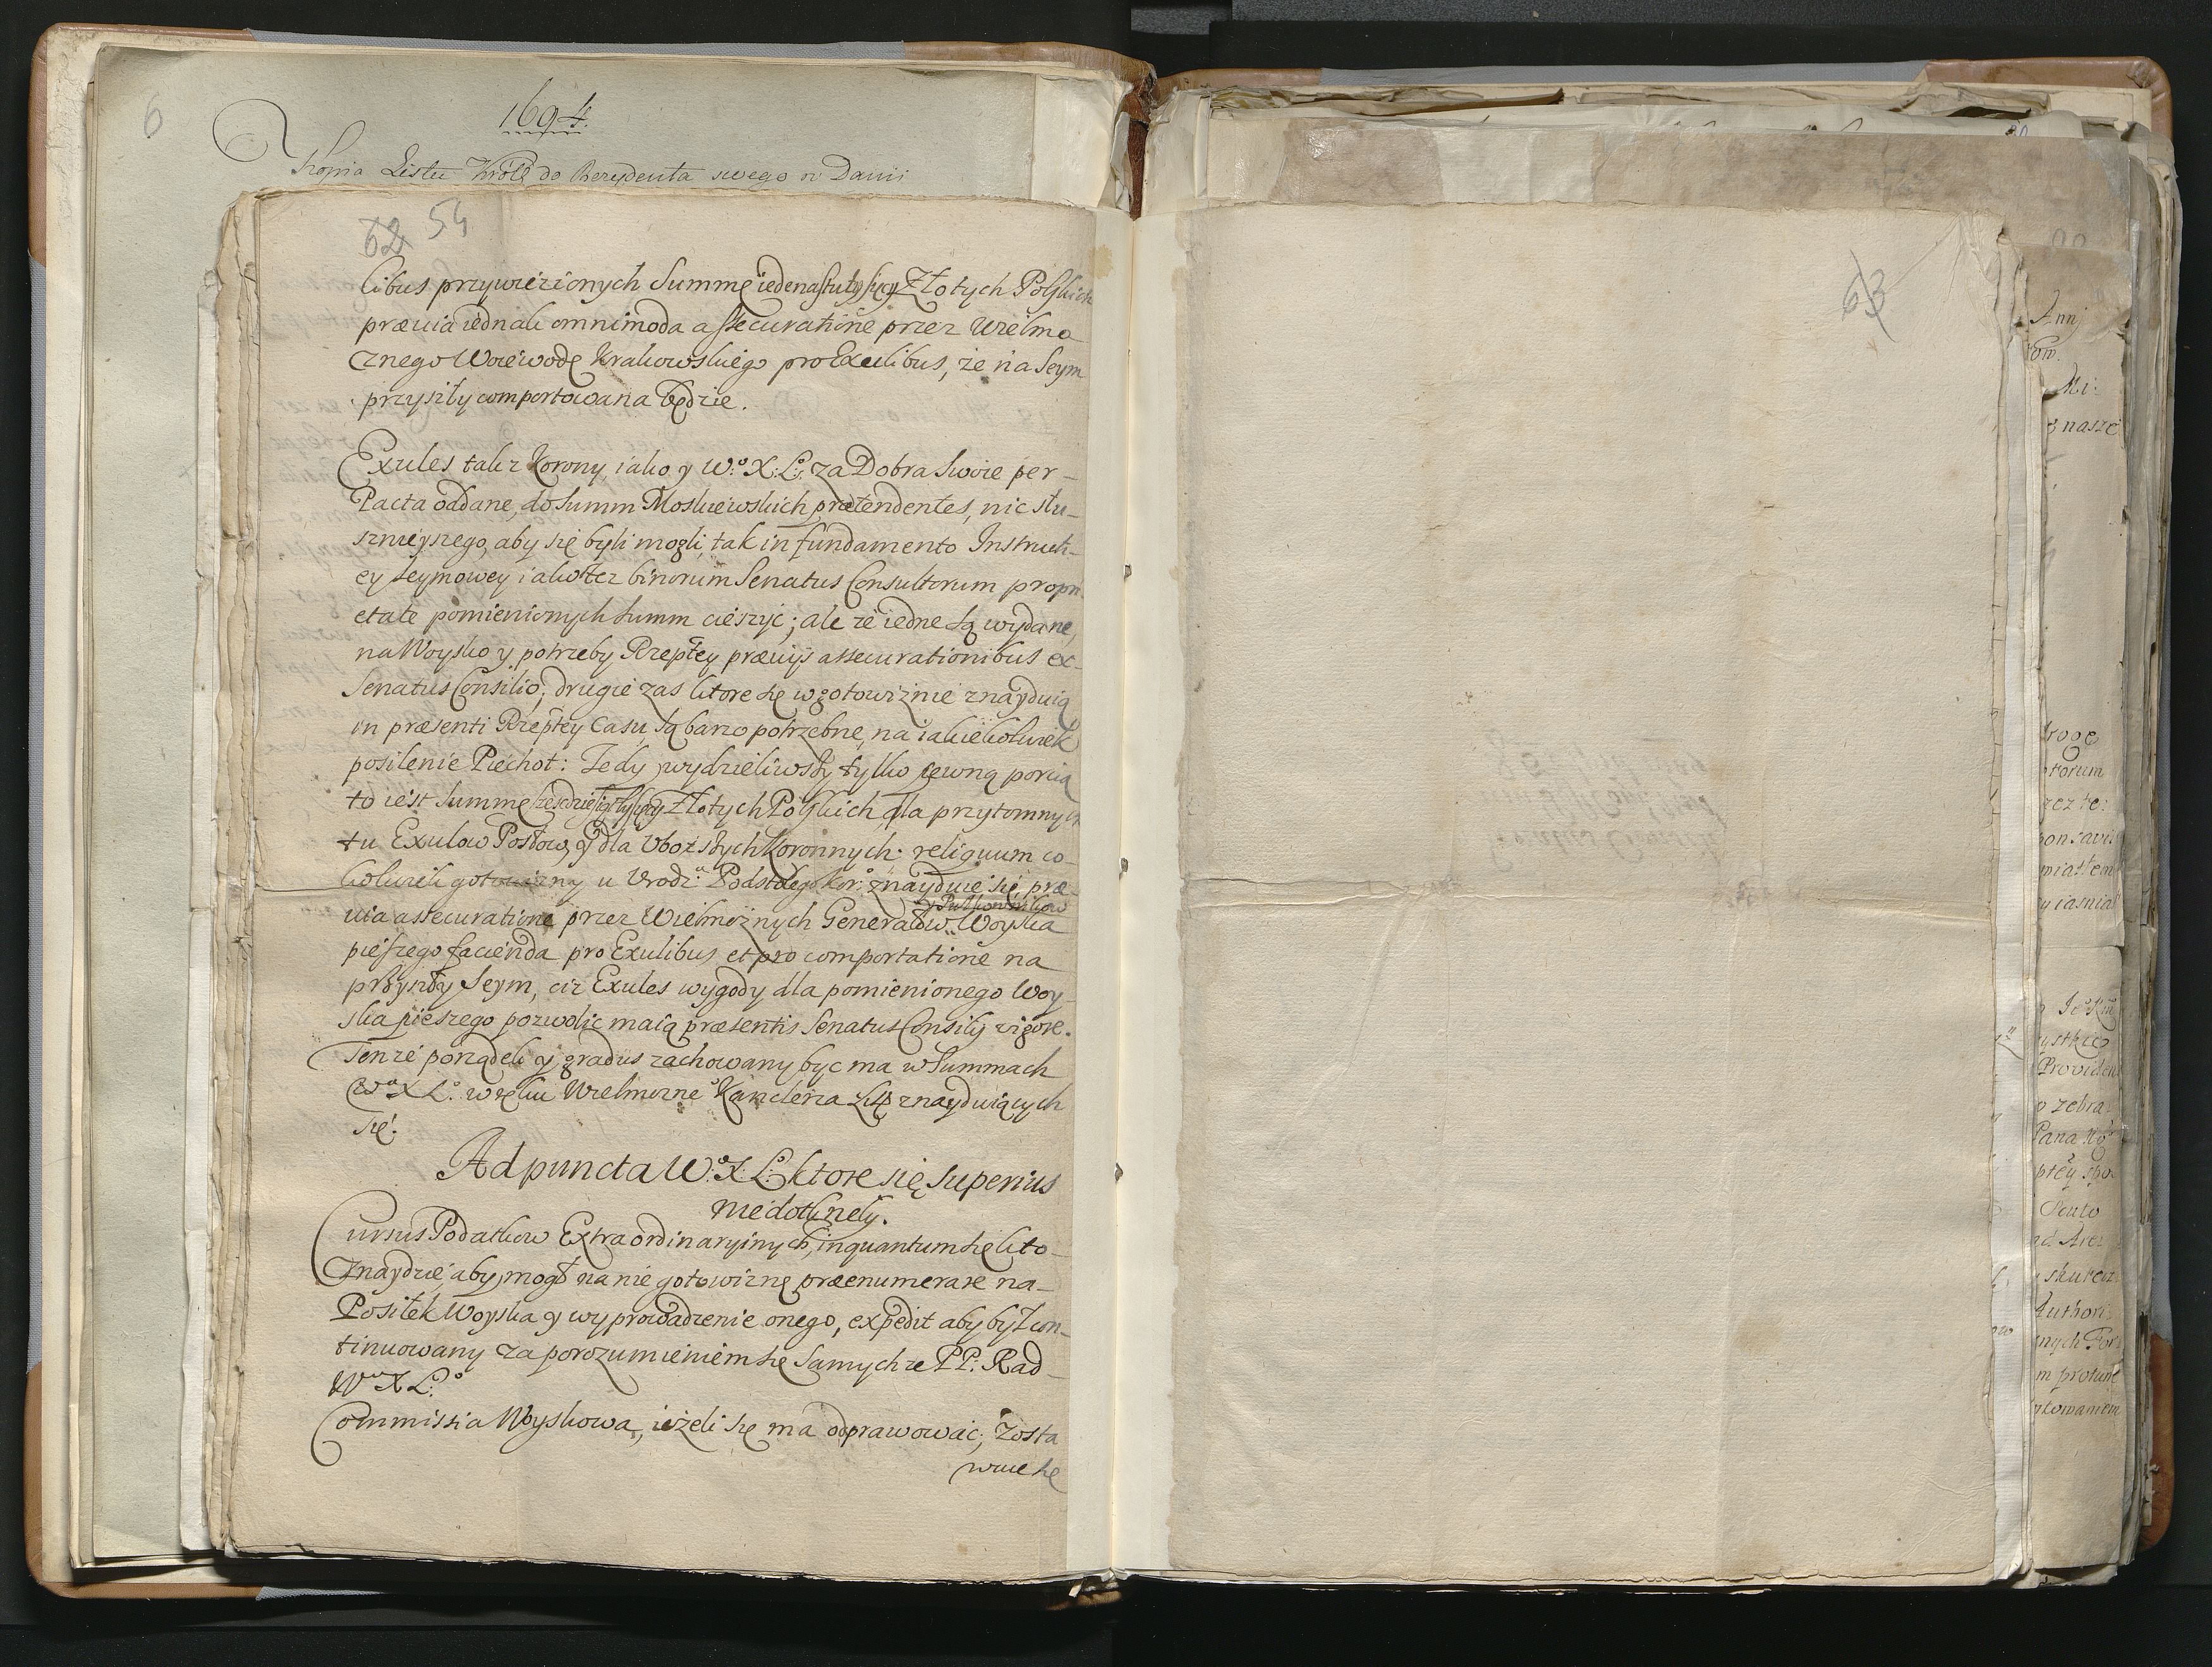 6
1694.
Kopia Listu Króla do Rezydenta swego w Danii
62 54
libus przywiezionych Summę iedenastu tysięcy Złotych Polskich
prævia iednak omnimoda assecuratione przez Wielmo
znego Woiewodę Krakowskiego pro Exulibus, ze na Seym
przyszły comportowana będzie.
Exules tak z Korony, iako y W:º X: L:º za Dobra Swoie per
Pacta oddane, do Summ Moskiewskich prætendentes, nic słu-
sznieyszego, aby się byli mogli, tak in fundamento Instruk-
cy Seymowey iako tez binorum Senatus Consultorum propri
etate pomienionych Summ cieszyc; ale ze iedne są wydane,
na Woysko y potrzeby Rzeptey præuijs assecurationibus ex
Senatus Consilio; drugie zas ktore się w gotowiznie znayduią
in præsenti Rzeptey Casu są barzo potrzebne, na iakiekolwiek
posilenie Piechot: Tedy wydzieliwszy tylko pewną porcią
to iest Summę szescdziesiąt tysięcy Złotych Polskich dla przytomnych
tu Exulow Posłow, y dla Uboższych Koronnych: reliquum co-
kolwiek gotowizny u Urodz:º Podstolego Kor: znayduie się, præ-
y Pułkownikow
via assecuratione przez Wielmożnych Generałow Woyska
pieszego facienda pro Exulibus et pro comportatione na
przyszły Seym, ciz Exules wygody dla pomienionego Woy-
ska pieszego pozwolic maią præsentis Senatus Consilij vigore.
Tenze porządek y gradus zachowany byc ma w Summach
W:º X L:º w ręku Wielmozne º Kanclerza znayduiących
się.
Ad puncta W:º X: L:º ktore się superius
nie dotknęły.
Cursus Podatkow Extraordinaryinych, inquantum się kto
znaydzie, aby mogł na nie gotowiznę præenumerare na
Posiłek Woyska y wyprowadzenie onego, expedit aby był con-
tinuowany za porozumieniem się samych ze PP: Rad
W:º X L:º
Commissia Woyskowa, iezeli się ma odprawowac, zosta
wuie się
63
Annj
tow.
Mi:
nasze